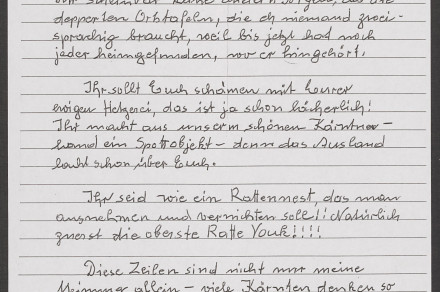 depperten Ortstafeln, die eh niemand zwei-
sprachig braucht, weil bis jetzt hat noch
jeder heimgefunden, wo er hingehört.
Ihr sollt Euch schämen mit Eurer
ewigen Hetzerei, das ist ja schon lächerlich!
Ihr macht aus unserm schönen Kärntner-
land ein Spottobjekt – denn das Ausland
lacht schon über Euch.
Ihr seid wie ein Rattennest, das man
ausnehmen und vernichten soll!! Natürlich
zuerst die oberste Ratte Vouk!!!!
Diese Zeilen sind nicht nur meine
Meinung allein – viele Kärnten denken so